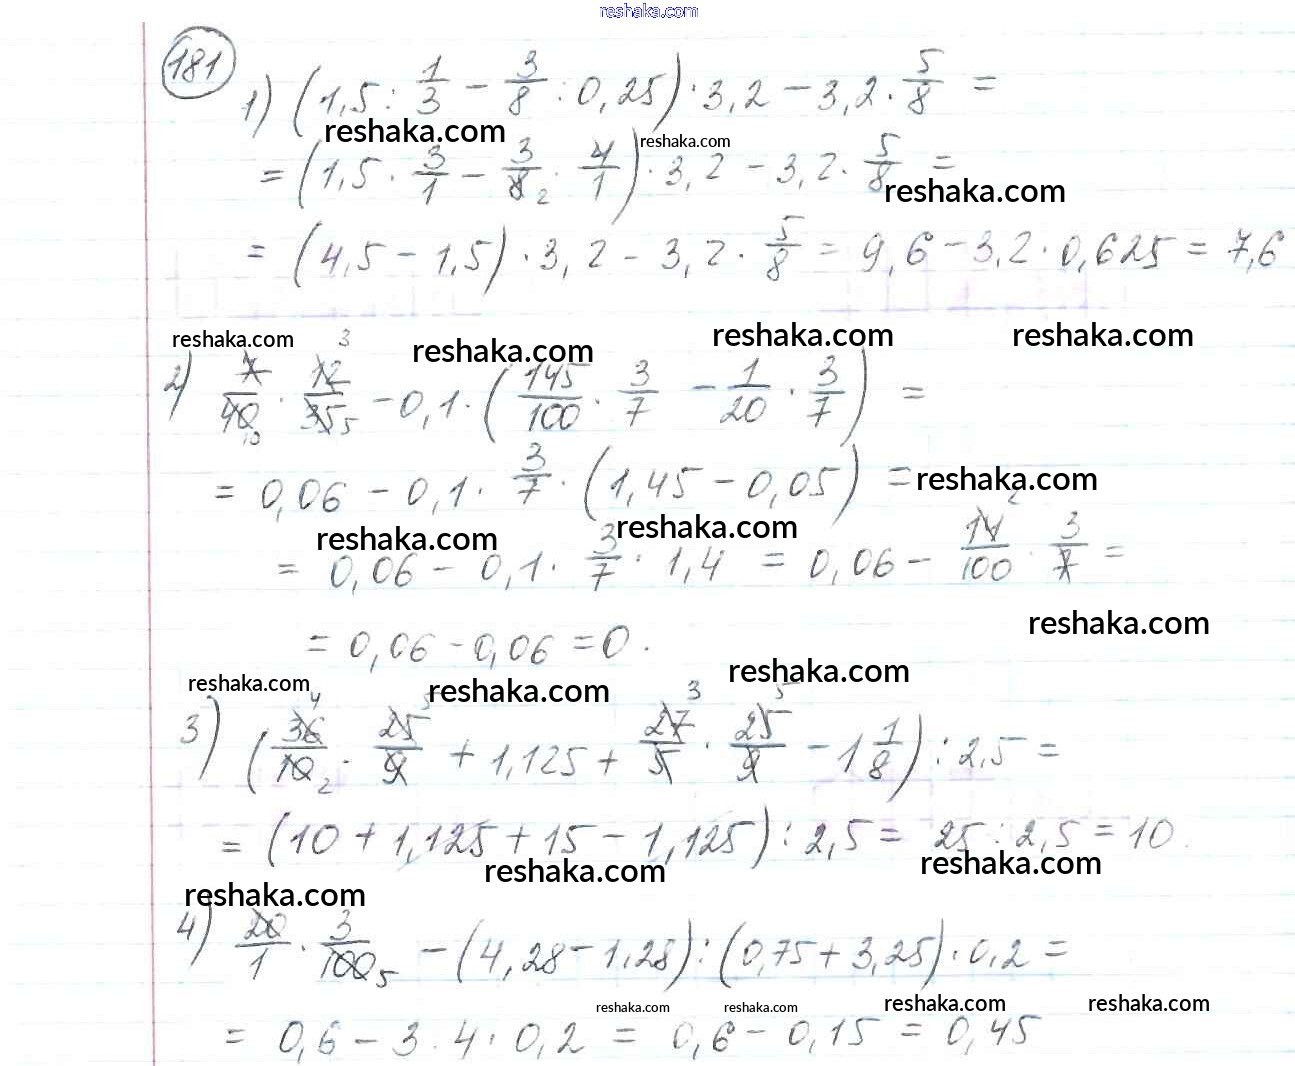 reshaka.com
181
1) (1,5 : 1/3 − 3/8 : 0,25) · 3,2 − 3,2 · 5/8 =
reshaka.com
reshaka.com
= (1,5 · 3/1 − 3/8 2 · 4/1) · 3,2 − 3,2 · 5/8 =
reshaka.com
= (4,5 − 1,5) · 3,2 − 3,2 · 5/8 = 9,6 − 3,2 · 0,625 = 7,6
reshaka.com
reshaka.com
reshaka.com
reshaka.com
2) 7/40 10 · 12 3/35 5 − 0,1 · (145/100 · 3/7 − 1/20 · 3/7) =
= 0,06 − 0,1 · 3/7 · (1,45 − 0,05) =
reshaka.com
reshaka.com
reshaka.com
= 0,06 − 0,1 · 3/7 · 1,4 = 0,06 − 14 2/100 · 3/7 =
reshaka.com
= 0,06 − 0,06 = 0.
reshaka.com
reshaka.com
reshaka.com
3) (36 4/10 2 · 25 5/9 + 1,125 + 27 3/5 · 25 5/9 − 1 1/8) : 2,5 =
= (10 + 1,125 + 15 − 1,125) : 2,5 = 25 : 2,5 = 10.
reshaka.com
reshaka.com
reshaka.com
4) 20/1 · 3/100 5 − (4,28 − 1,28) : (0,75 + 3,25) · 0,2 =
reshaka.com
reshaka.com
reshaka.com
reshaka.com
= 0,6 − 3 : 4 · 0,2 = 0,6 − 0,15 = 0,45